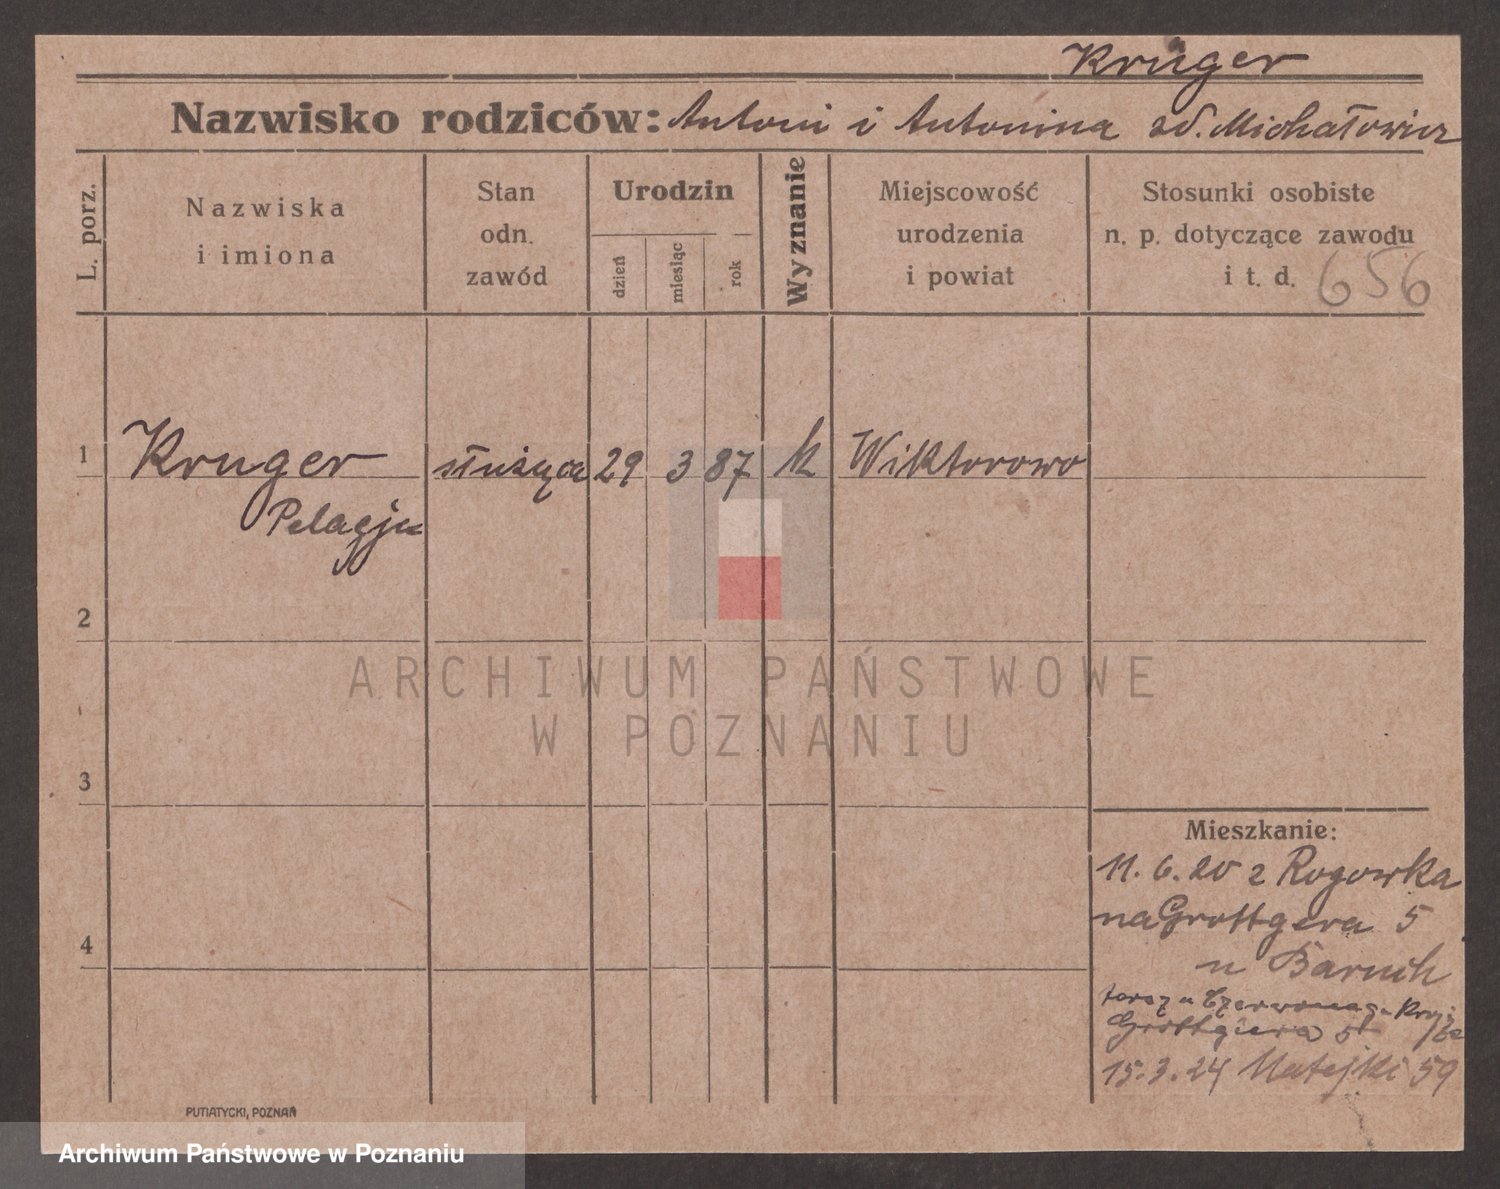 Krüger
Nazwisko rodziców: Antoni i Antonina zd. Michałowicz
L. porz.
Nazwiska
i imiona
Stan
odn.
zawód
Urodzin
dzień
miesiąc
rok
Wyznanie
Miejscowość
urodzenia
i powiat
Stosunki osobiste
n. p. dotyczące zawodu
i t. d. 656
1 Kruger służąca 29 3 87 k Wiktorowo
Pelagja
2
3
4
Mieszkanie:
11. 6. 20 z Rogowka
na Grottgera 5
u Baruch
u Czerwonego Krzyża
Grottgiera 5
15. 3. 24 Matejki 59
PUTIATYCKI, POZNAŃ
ARCHIWUM PAŃSTWOWE
W POZNANIU
Archiwum Państwowe w Poznaniu